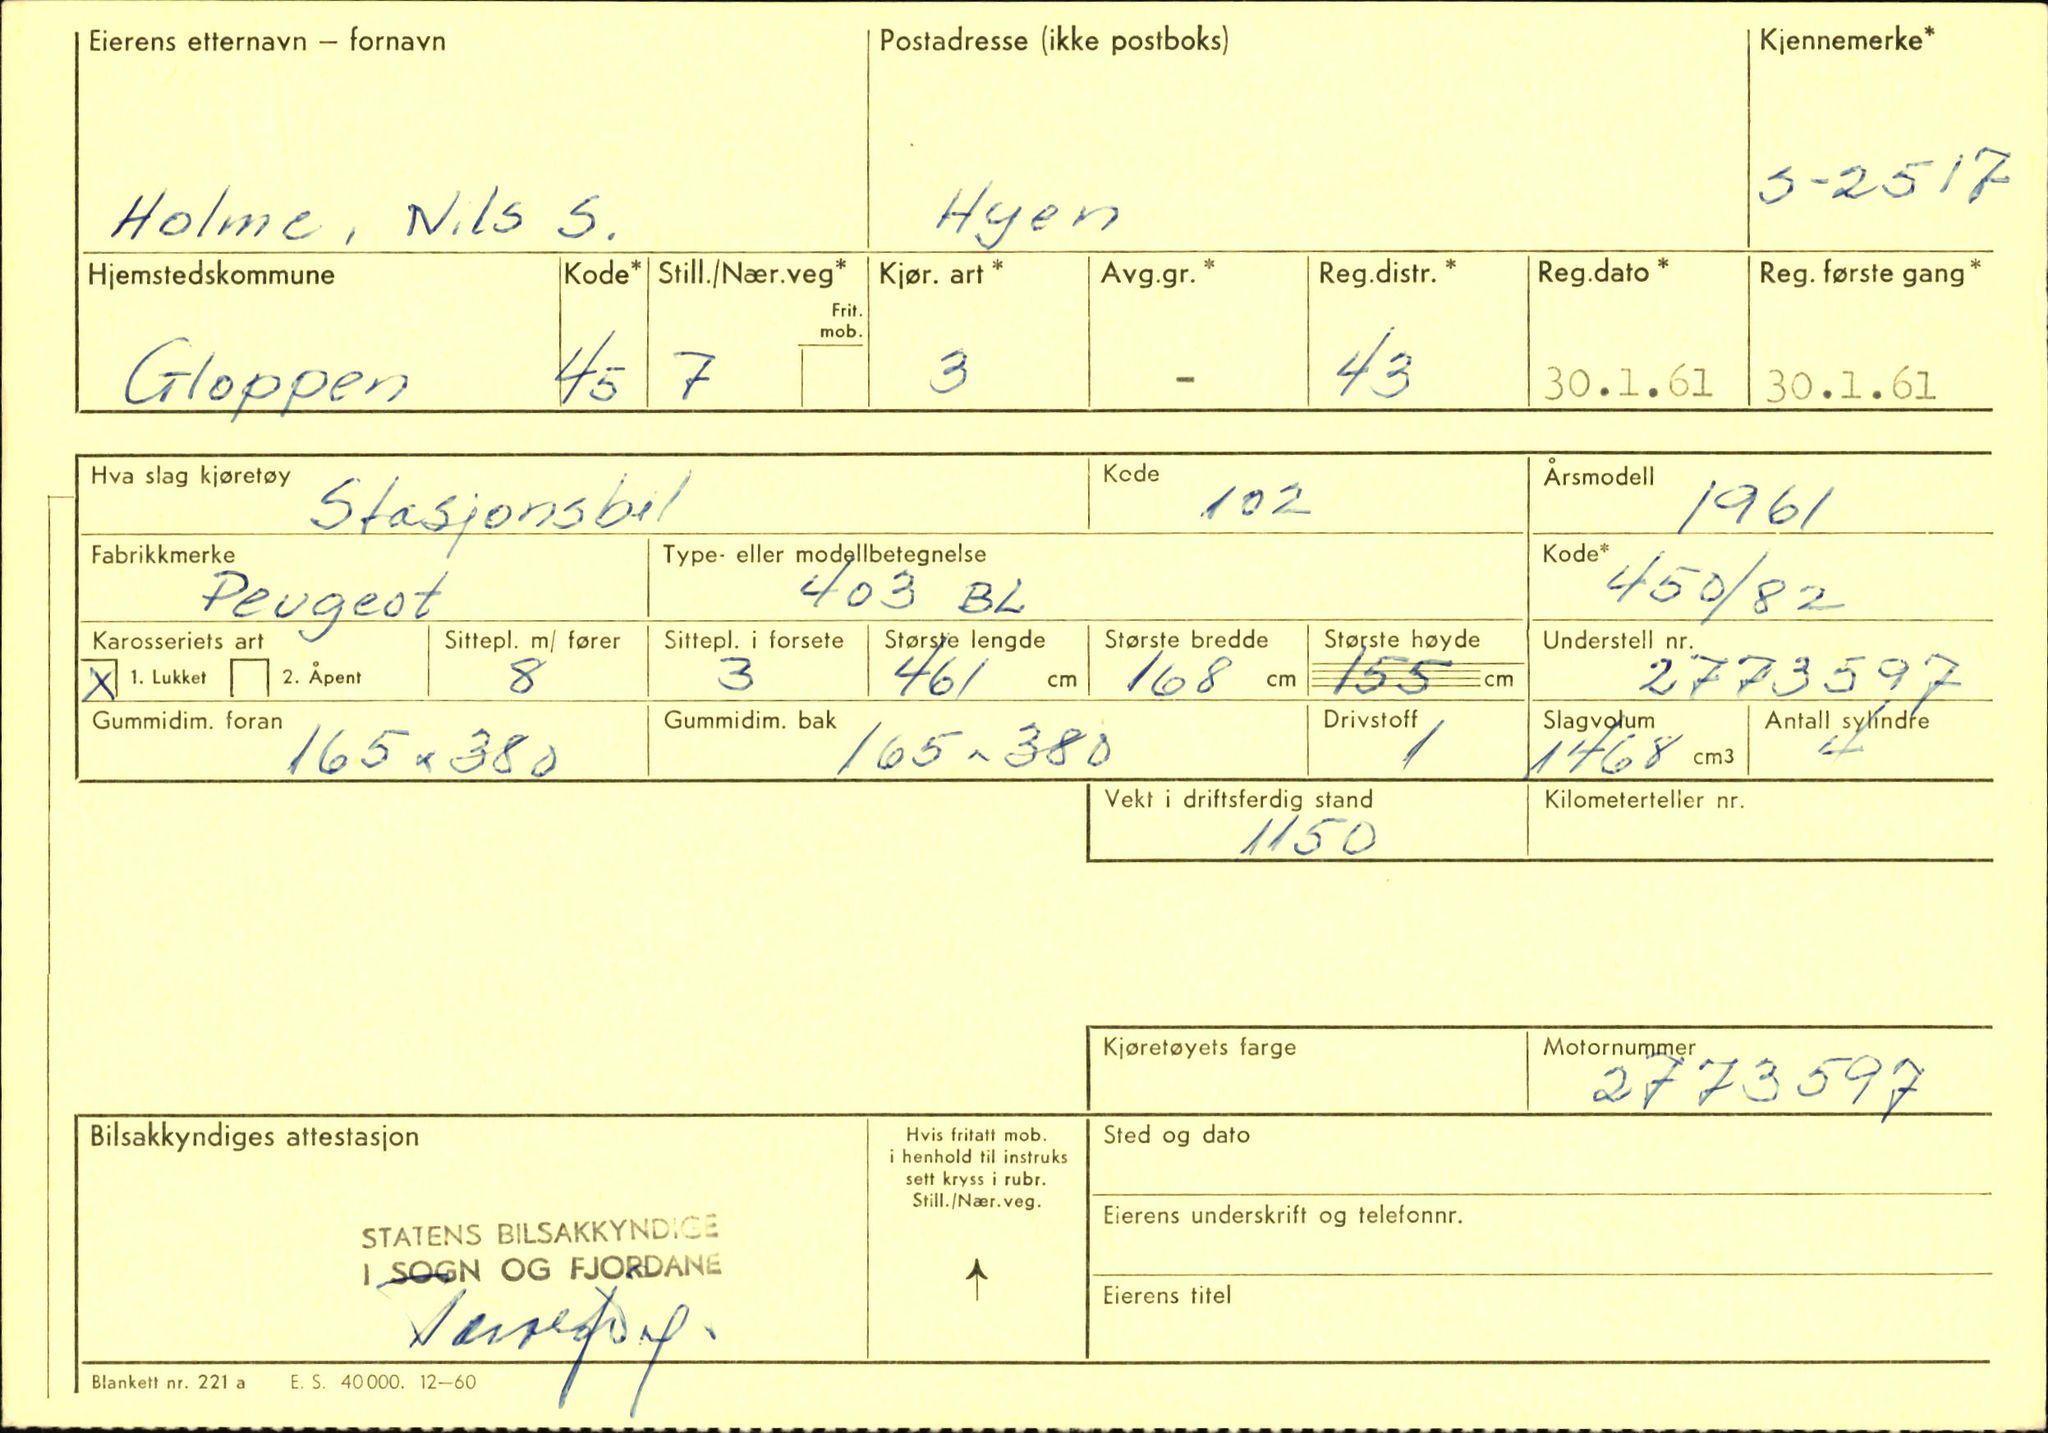 Eierens etternavn – fornavn Postadresse (ikke postboks) Kjennemerke*
Holme, Nils S. Hyen S-2517
Hjemstedskommune Kode* Still./Nær.veg* Kjør. art * Avg.gr. * Reg.distr. * Reg.dato * Reg. første gang *
Frit.
mob.
Gloppen 45 7 3 - 43 30.1.61 30.1.61
Hva slag kjøretøy Stasjonsbil Kode 102 Årsmodell 1961
Fabrikkmerke Type- eller modellbetegnelse Kode*
Peugeot 403 BL 450/82
Karosseriets art Sittepl. m/ fører Sittepl. i forsete Største lengde Største bredde Største høyde Understell nr.
X 1. Lukket 2. Åpent 8 3 461 cm 168 cm 155 cm 2773597
Gummidim. foran Gummidim. bak Drivstoff Slagvolum Antall sylindre
165 x 380 165 x 380 1 1468 cm3 4
Vekt i driftsferdig stand Kilometerteller nr.
1150
Kjøretøyets farge Motornummer
2773597
Bilsakkyndiges attestasjon
Hvis fritatt mob.
i henhold til instruks
sett kryss i rubr.
Still./Nær.veg.
Sted og dato
Eierens underskrift og telefonnr.
Eierens titel
STATENS BILSAKKYNDIGE
I SOGN OG FJORDANE
Blankett nr. 221 a E. S. 40000. 12–60